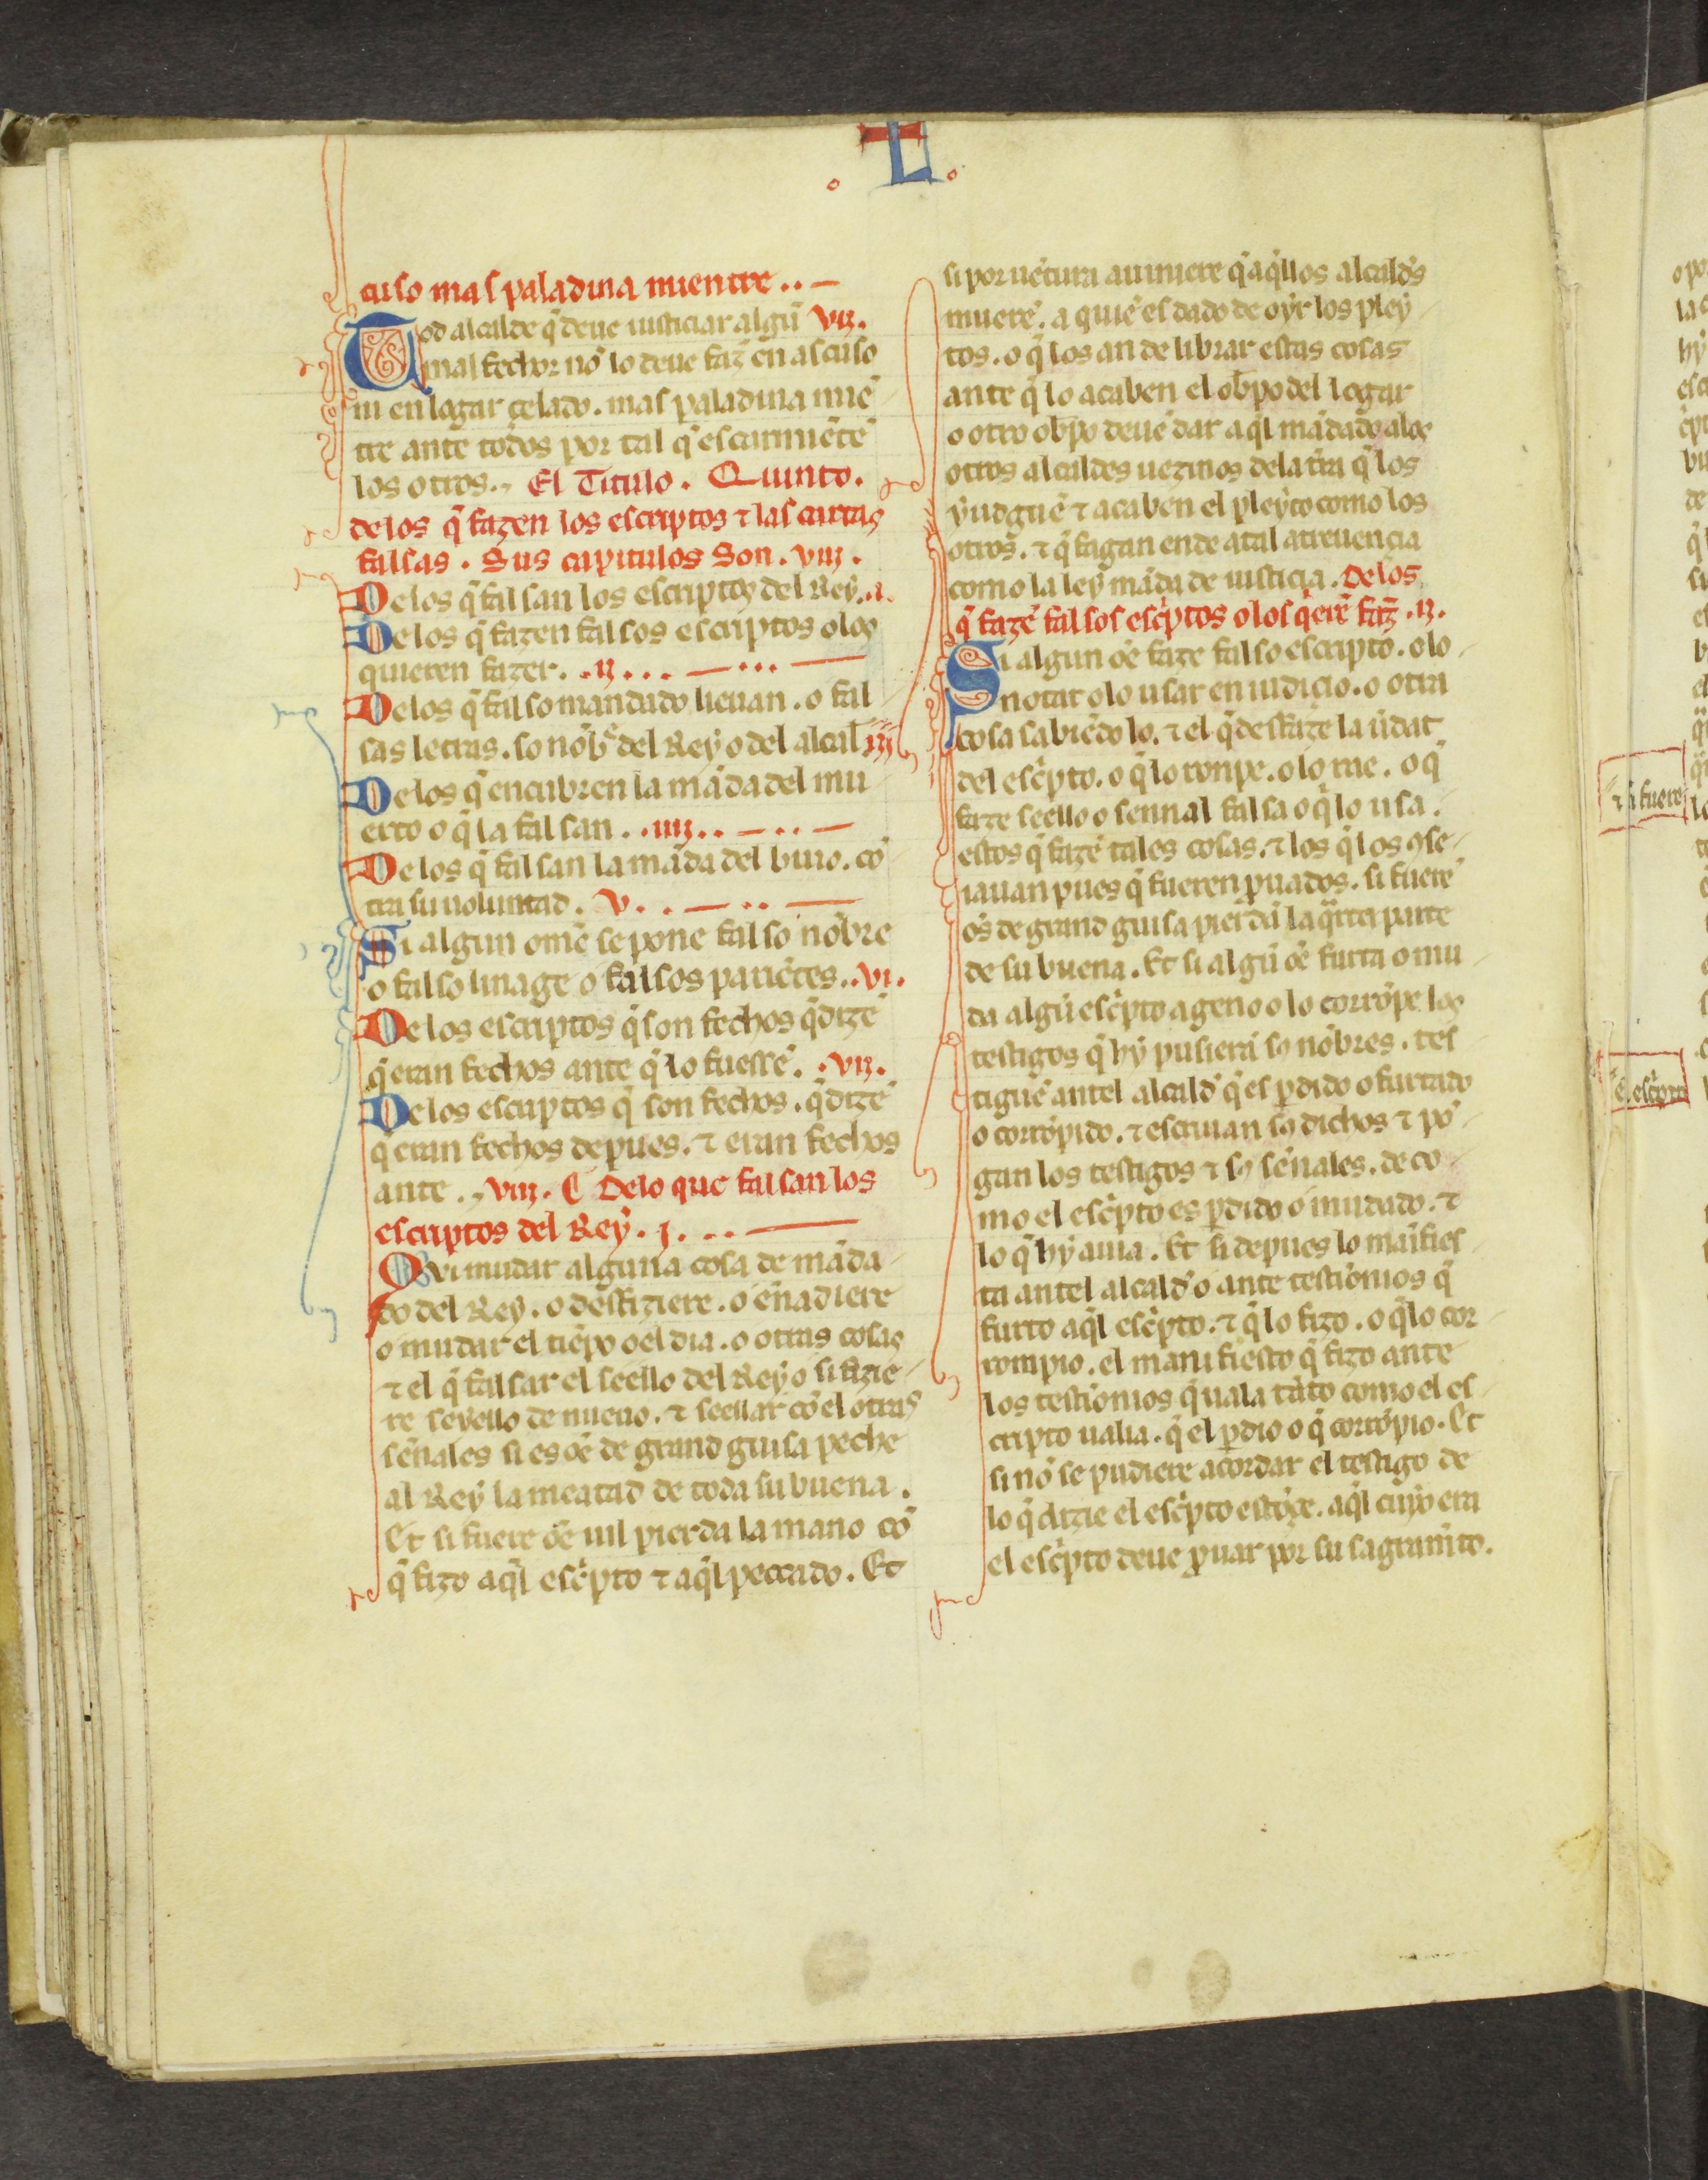 L
cuso mas paladina mientre..
Tod alcalde q̃ deue iusticiar algũ vij.
mal fechor nõ lo deue faz̃ en ascuso
ni en logar çelado. mas paladina miẽ
tre ante todos por tal q̃ escarmiẽtẽ
los otros. El Titulo. Quinto.
delos q̃ fazen los escriptos ⁊ las cartas
falsas. Sus capitulos Son. viij.
Delos q̃ falsan los escriptos del Rey. .i.
Delos q̃ fazen falsos escriptos olos
quieren fazer. .ij...
Delos q̃ falso mandado lieuan. o fal
sas letras. so nõbr̃ del Rey o del alcal iij
Delos q̃ encubren la mãda del mu
erto o q̃ la falsan. .iiij..
Delos q̃ falsan la mãda del biuo. cõ
tra su uoluntad. v..
Si algun ome se pone falso nõbre
o falso linage o falsos pariẽtes. .vi.
Delos escriptos q̃ son fechos q̃ dizẽ
q̃ eran fechos ante q̃ lo fuessẽ. .vij.
Delos escriptos q̃ son fechos. q̃ dizẽ
q̃ eran fechos depues. ⁊ eran fechos
ante. viij. ¶ Delo que falsan los
escriptos del Rey. j. ...
Qvi mudar alguna cosa de mãda
do del Rey. o desfiziere. o ennadiere
o mudar el tiẽpo o el dia. o otras cosas
⁊ el q̃ falsar el seello del Rey o si fizie
re seyello de nueuo. ⁊ seellar cõ el otras
sẽnales si es oẽ de grand guisa peche
al Rey la meatad de toda su buena.
Et si fuere oẽ uil pierda la mano cõ
q̃ fizo aq̃l escp̃to ⁊ aq̃l peccado. Et
si por uẽtura auiniere q̃ aq̃llos alcalds
muerẽ. a quiẽ es dado de oyr los pley
tos. o q̃ los an de librar estas cosas
ante q̃ lo acaben el ob̃po del logar
o otro ob̃po deue dar aq̃l mãdado alos
otros alcaldes uezinos dela tr̃ra q̃ los
yudguẽ ⁊ acaben el pleyto como los
otros. ⁊ q̃ fagan ende atal atreuencia
como la ley mãda de iusticia. Delos
q̃ fazẽ falsos escp̃tos o los q̃ erẽ faz̃ .ij.
Si algun oẽ faze falso escripto. o lo
notar o lo usar en iudicio. o otra
cosa sabiẽdo lo. ⁊ el q̃ desfaze la ũdat
del escp̃to. o q̃ lo ronpe. o lo rae. o q̃
faze seello o sennal falsa o q̃ lo usa.
estos q̃ fazẽ tales cosas. ⁊ los q̃ los ꝯse
iauan pues q̃ fueren ꝓuados. si fuerẽ
oẽs de grand guisa pierdã la q̃rta parte
de su buena. Et si algũ oẽ furta o mu
da algũ escp̃to ageno o lo corrõpe los
testigos q̃ hy pusierã so nõbres. tes
tiguẽ antel alcald q̃ es ꝑdido o furtado
o corrõpido. ⁊ escriuan so dichos ⁊ põ
gan los testigos ⁊ so sẽnales. de co
mo el escp̃to es ꝑdido o mudado. ⁊
lo q̃ hy auia. Et si depues lo manifies
ta antel alcald o ante testimonios q̃
furto aq̃l escp̃to. ⁊ q̃ lo fizo. o q̃ lo cor
rompio. el manifiesto q̃ fizo ante
los testimonios q̃ uala tãto como el es
cripto ualia. q̃ el ꝑdio o q̃ corrõpio. Et
si nõ se pudiere acordar el testigo de
lo q̃ dizie el escp̃to estõçe. aq̃l cuyo era
el escp̃to deue ꝓuar por su sagramẽto.
⁊ si fuere
el escp̃to